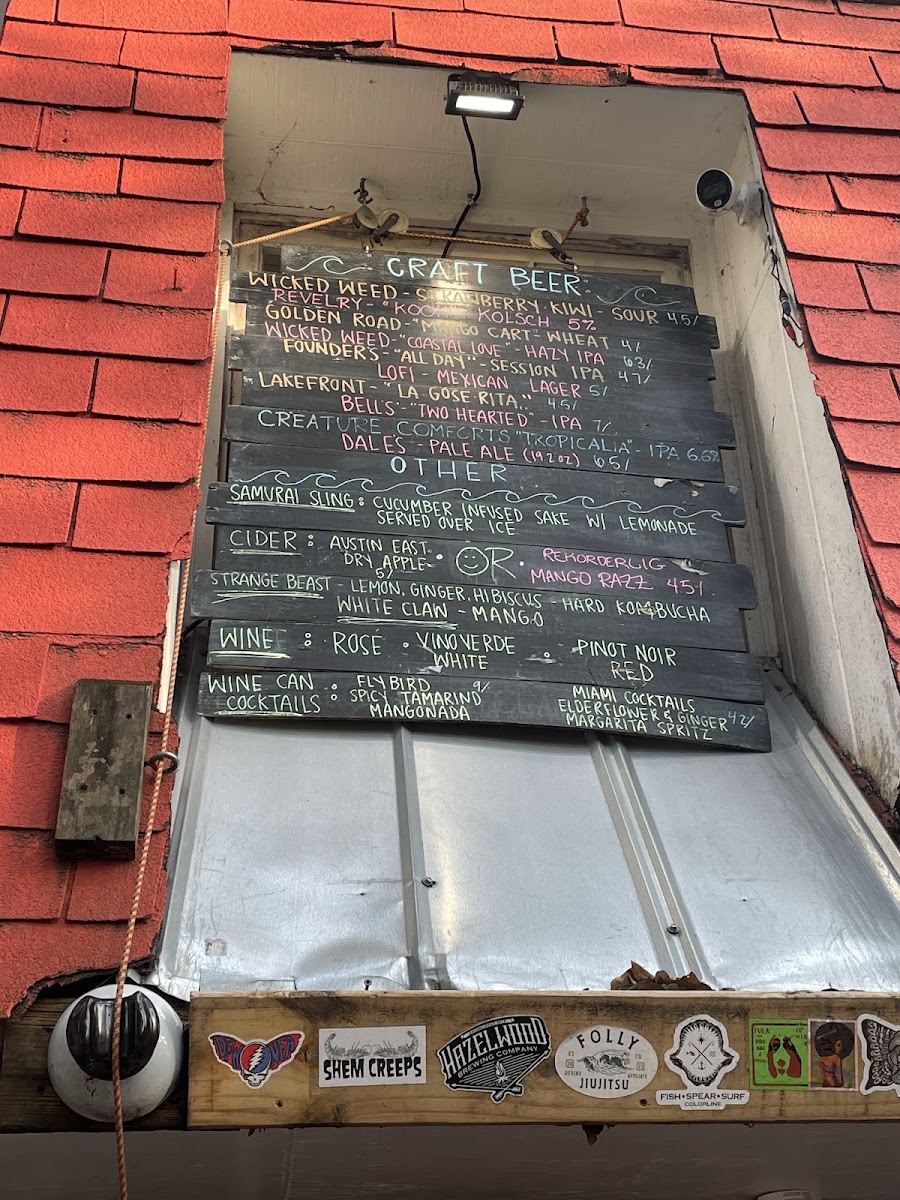 CRAFT BEER:
WICKED WEED - STRAWBERRY KIWI - SOUR 4.5%
REVELRY - "KOOK" KOLSCH 5%
GOLDEN ROAD - "MANGO CART" WHEAT 4%
WICKED WEED - "COASTAL LOVE" - HAZY IPA 6.3%
FOUNDER'S - "ALL DAY" - SESSION IPA 4.7%
LOFI - MEXICAN LAGER 5%
LAKEFRONT - "LA GOSE RITA" 4.5%
BELL'S - "TWO HEARTED" - IPA 7%
CREATURE COMFORTS "TROPICALIA" - IPA 6.6%
DALE'S - PALE ALE (19.2OZ) 6.5%
OTHER
SAMURAI SLING: CUCUMBER INFUSED SAKE W/ LEMONADE
SERVED OVER ICE
CIDER: AUSTIN EAST. DRY APPLE 5% • OR • REKORDERLIG MANGO RAZZ 4.5%
STRANGE BEAST - LEMON, GINGER, HIBISCUS - HARD KOMBUCHA
WHITE CLAW - MANGO
WINE: ROSÉ • VINO VERDE WHITE • PINOT NOIR RED
WINE CAN COCKTAILS: FLYBIRD 9% SPICY TAMARIND MANGONADA
MIAMI COCKTAILS
ELDERFLOWER & GINGER 4.2%
MARGARITA SPRITZ
SHEM CREEPS
HAZELWOOD
BREWING COMPANY
FOLLY
JIUJITSU
FISH • SPEAR • SURF
COLORLINE